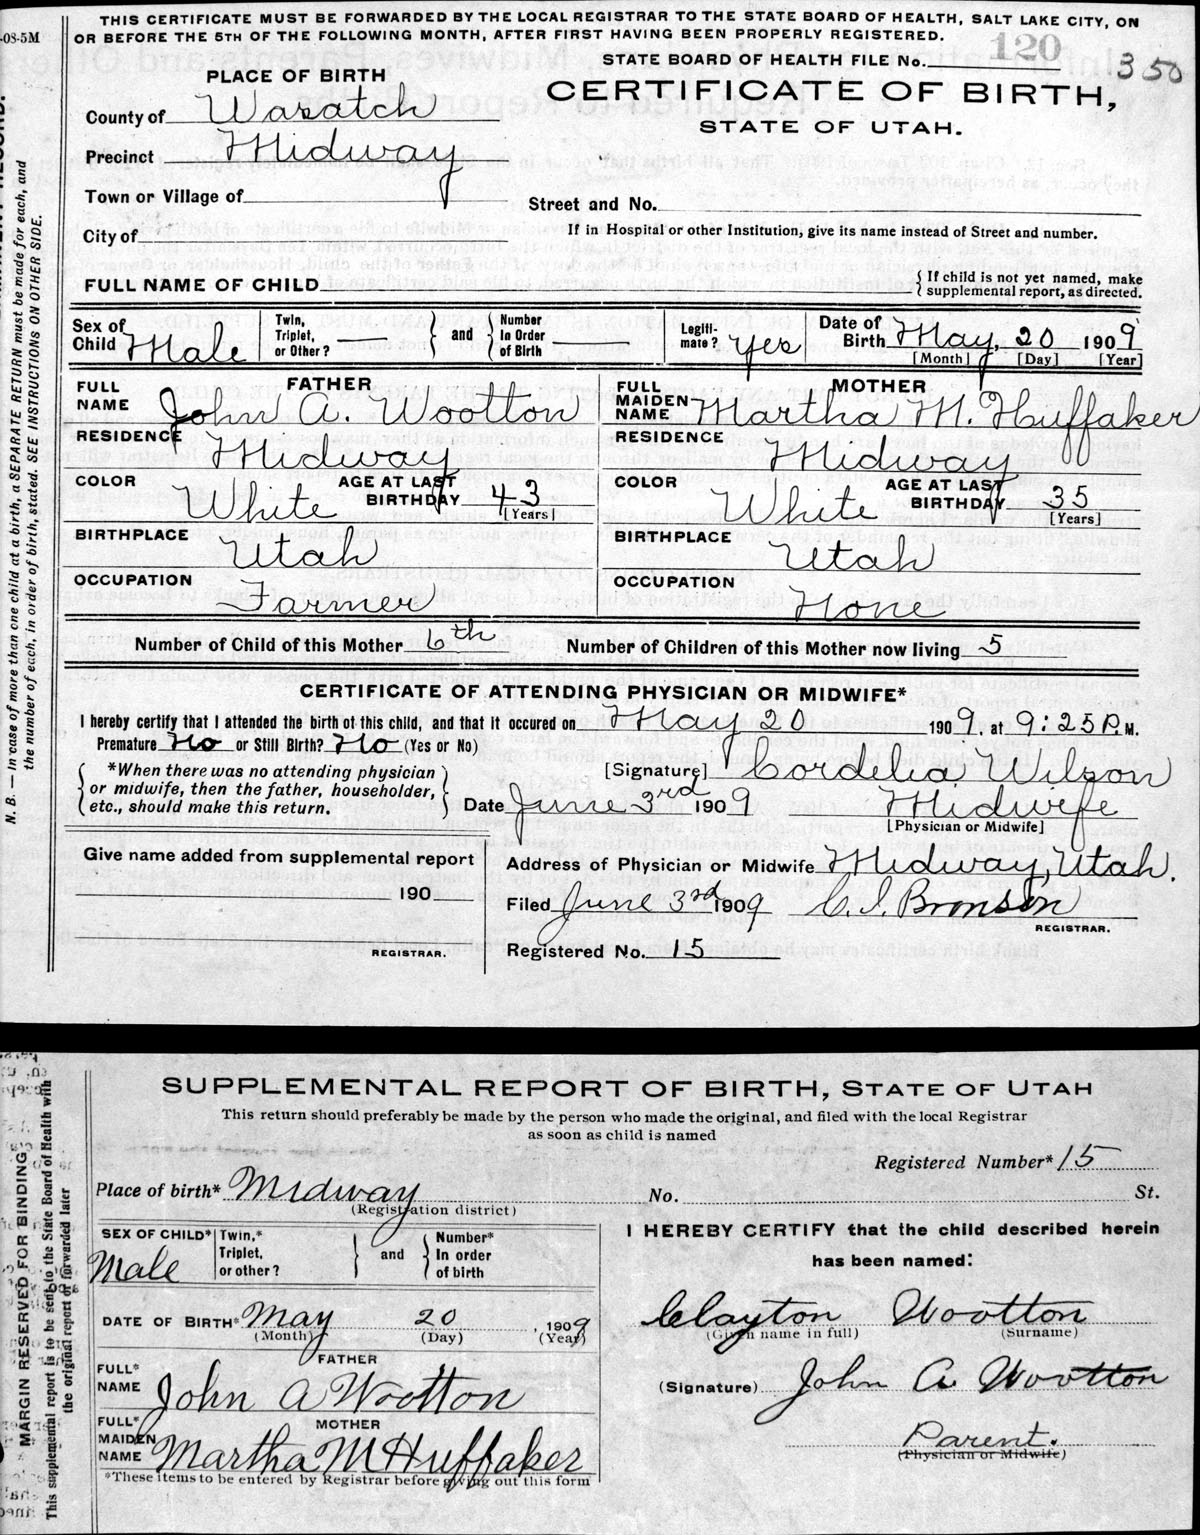 THIS CERTIFICATE MUST BE FORWARDED BY THE LOCAL REGISTRAR TO THE STATE BOARD OF HEALTH, SALT LAKE CITY, ON
-08-5M OR BEFORE THE 5TH OF THE FOLLOWING MONTH, AFTER FIRST HAVING BEEN PROPERLY REGISTERED.
STATE BOARD OF HEALTH FILE No. 120 350
PLACE OF BIRTH
CERTIFICATE OF BIRTH,
STATE OF UTAH.
County of Wasatch
Precinct Midway
Town or Village of
Street and No.
City of
If in Hospital or other Institution, give its name instead of Street and number.
FULL NAME OF CHILD { If child is not yet named, make supplemental report, as directed.
Sex of Child Male Twin, Triplet, or Other? — } and { Number In Order of Birth — Legiti-mate? Yes Date of Birth May, 20 1909
[Month] [Day] [Year]
FATHER
FULL NAME John A. Wootton
RESIDENCE Midway
COLOR White AGE AT LAST BIRTHDAY 43
[Years]
BIRTHPLACE Utah
OCCUPATION Farmer
MOTHER
FULL MAIDEN NAME Martha M. Huffaker
RESIDENCE Midway
COLOR White AGE AT LAST BIRTHDAY 35
[Years]
BIRTHPLACE Utah
OCCUPATION None
Number of Child of this Mother 6th Number of Children of this Mother now living 5
CERTIFICATE OF ATTENDING PHYSICIAN OR MIDWIFE*
I hereby certify that I attended the birth of this child, and that it occured on May 20 1909, at 9:25 P.M.
Premature No or Still Birth? No (Yes or No)
{ *When there was no attending physician
or midwife, then the father, householder,
etc., should make this return. }
[Signature] Cordelia Wilson
Date June 3rd 1909 Midwife
[Physician or Midwife]
Give name added from supplemental report
190
REGISTRAR.
Address of Physician or Midwife Midway, Utah.
Filed June 3rd 1909 C. I. Bronson
REGISTRAR.
Registered No. 15
N. B. — In case of more than one child at a birth, a SEPARATE RETURN must be made for each, and
the number of each, in order of birth, stated. SEE INSTRUCTIONS ON OTHER SIDE.
SUPPLEMENTAL REPORT OF BIRTH, STATE OF UTAH
This return should preferably be made by the person who made the original, and filed with the local Registrar
as soon as child is named
Registered Number* 15
Place of birth* Midway No. St.
(Registration district)
SEX OF CHILD* Male Twin,* Triplet, or other? } and { Number* In order of birth
DATE OF BIRTH* May 20, 1909
(Month) (Day) (Year)
FATHER
FULL* NAME John A Wootton
MOTHER
FULL* MAIDEN NAME Martha M Huffaker
*These items to be entered by Registrar before giving out this form
I HEREBY CERTIFY that the child described herein
has been named:
Clayton Wootton
(Given name in full) (Surname)
(Signature) John A. Wootton
Parent.
(Physician or Midwife)
MARGIN RESERVED FOR BINDING
This supplemental report is to be sent to the State Board of Health with
the original report or forwarded later